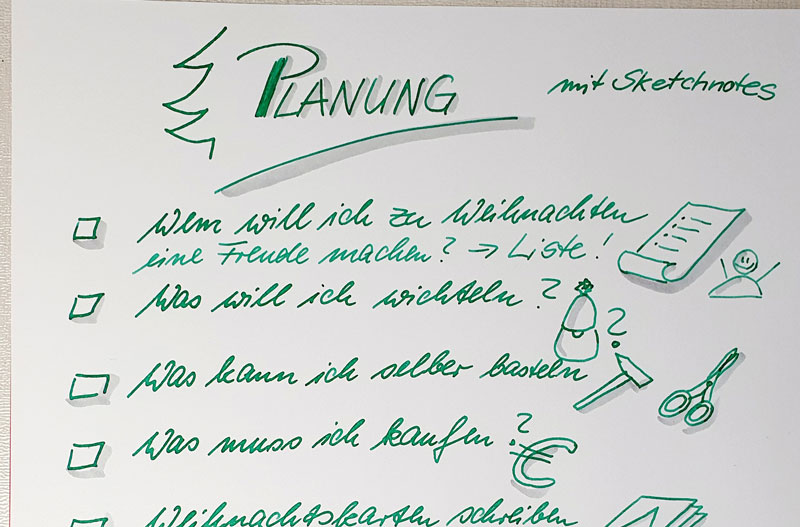 PLANUNG
mit Sketchnotes
Wem will ich zu Weihnachten
eine Freude machen? → Liste!
Was will ich wichteln?
Was kann ich selber basteln?
Was muss ich kaufen?
€
Weihnachtskarten schreiben